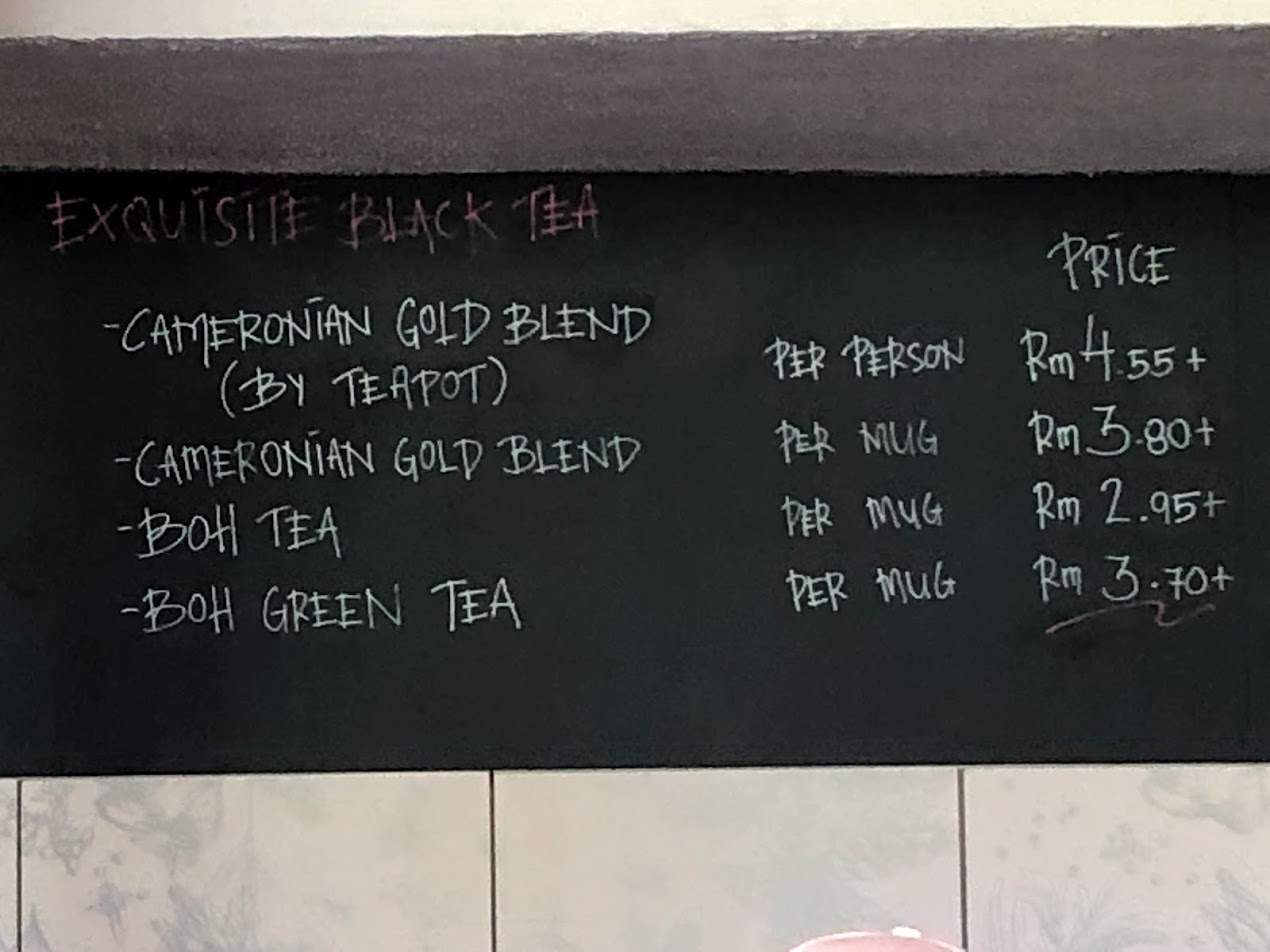 EXQUISITE BLACK TEA
PRICE
-CAMERONIAN GOLD BLEND
(BY TEAPOT) PER PERSON Rm 4.55+
-CAMERONIAN GOLD BLEND PER MUG Rm 3.80+
-BOH TEA PER MUG Rm 2.95+
-BOH GREEN TEA PER MUG Rm 3.70+